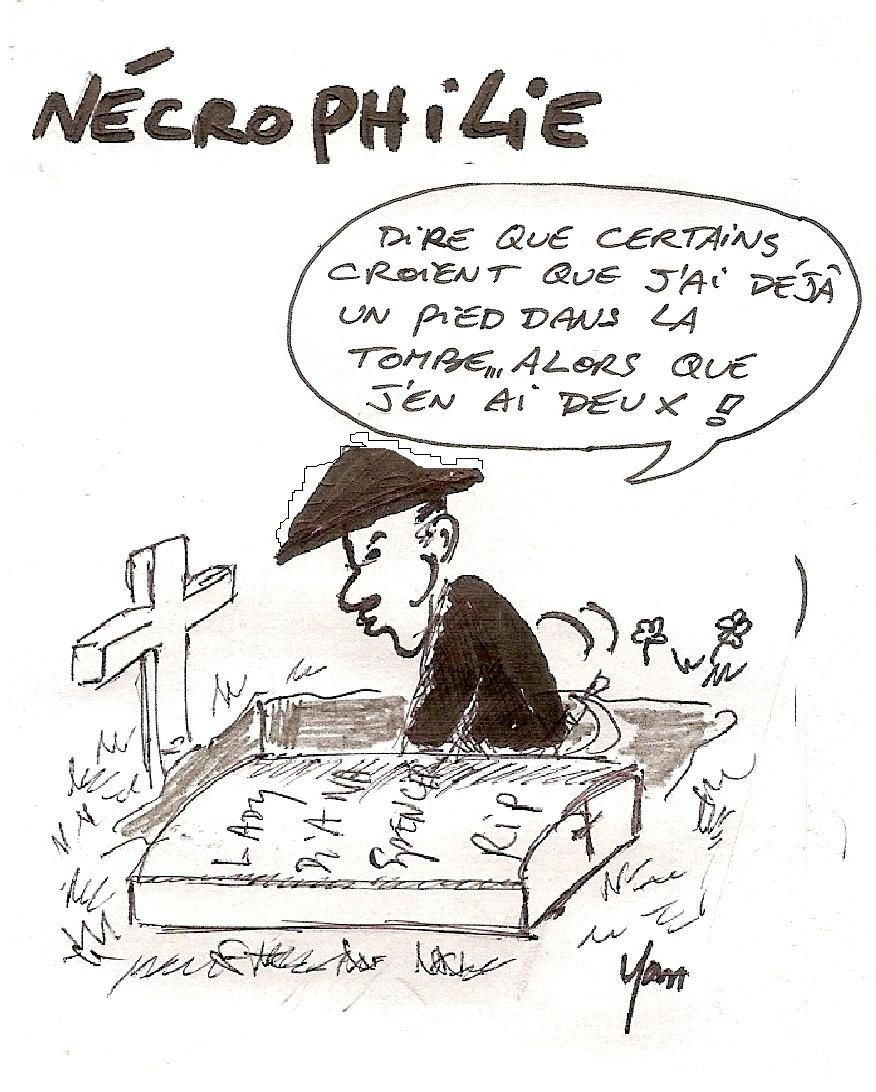 NÉCROPHILIE
DIRE QUE CERTAINS
CROIENT QUE J'AI DÉJÀ
UN PIED DANS LA
TOMBE... ALORS QUE
J'EN AI DEUX !
LADY
DIANA
SPENCER
RIP
Yam